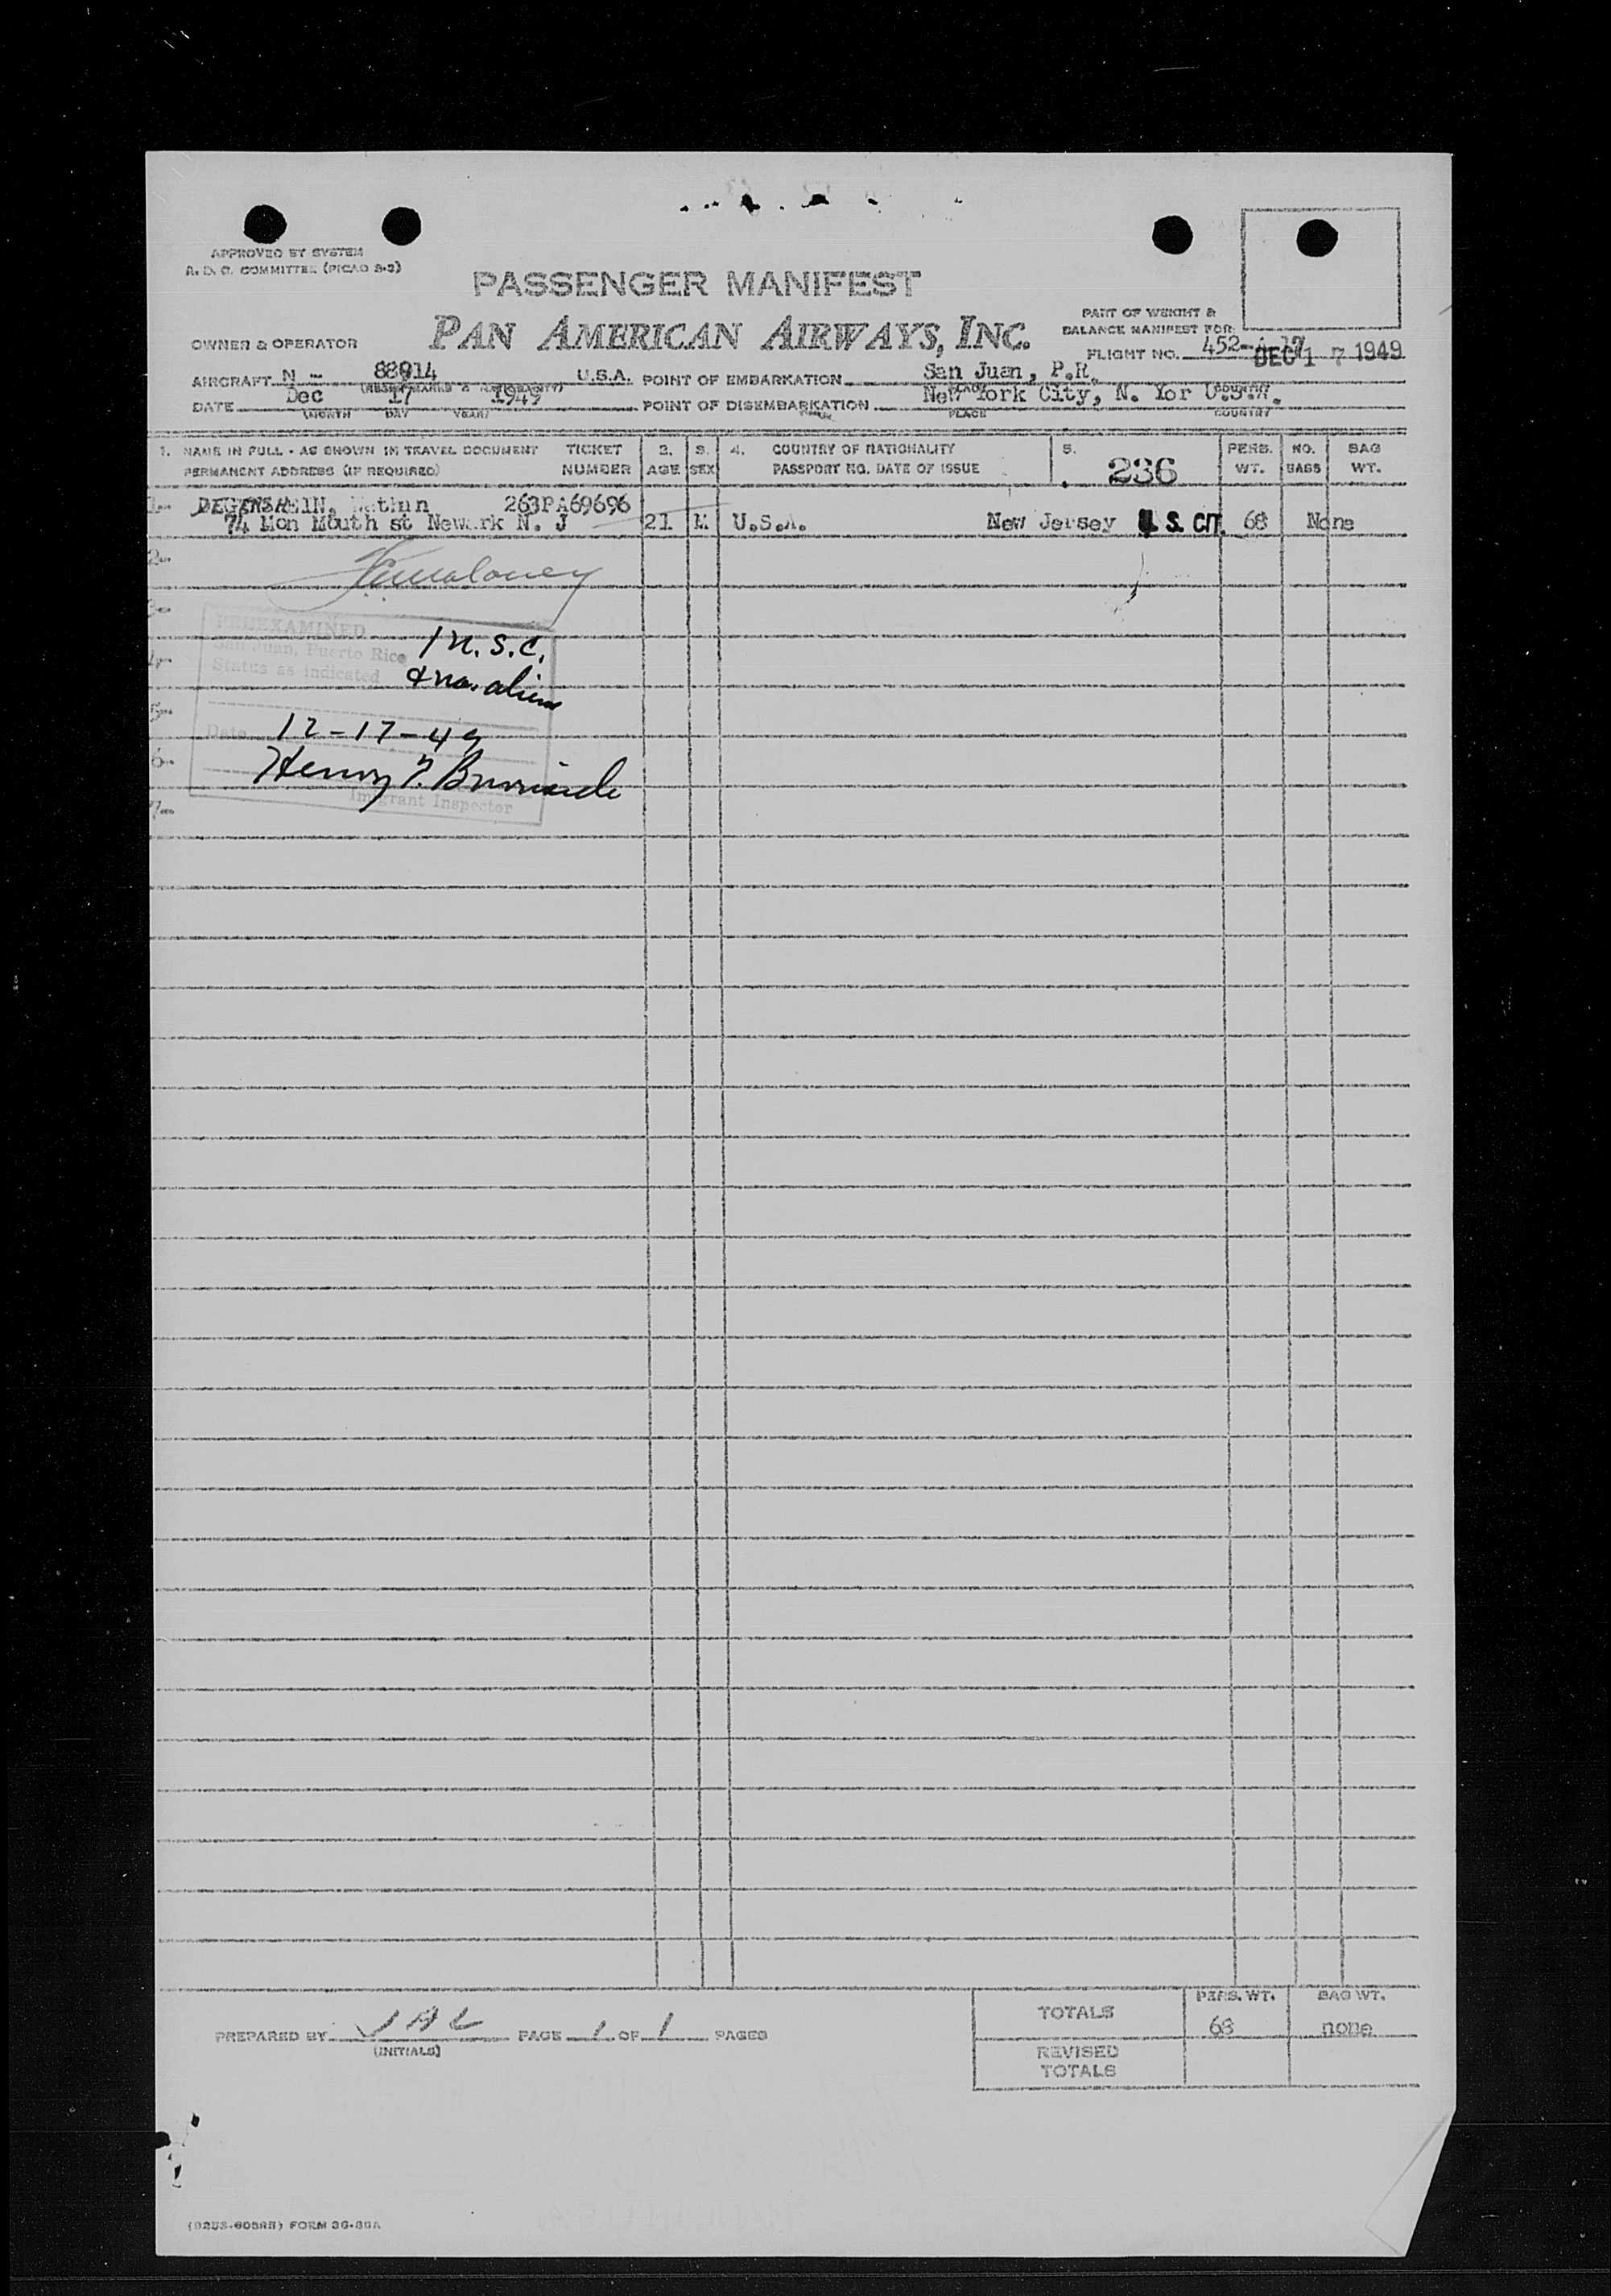 APPROVED BY SYSTEM
A. D. C. COMMITTEE (PICAO 2-3)
PASSENGER MANIFEST
PAN AMERICAN AIRWAYS, INC.
PART OF WEIGHT &
BALANCE MANIFEST FOR
OWNER & OPERATOR
FLIGHT NO. 452-A 17 DEC 1 7 1949
AIRCRAFT N - 88914 U.S.A. POINT OF EMBARKATION San Juan, P.R.
DATE Dec 17 1949 POINT OF DISEMBARKATION New York City, N. Yor U.S.A.
(MONTH DAY YEAR) PLACE COUNTRY
1. NAME IN FULL - AS SHOWN IN TRAVEL DOCUMENT TICKET 2. 3. 4. COUNTRY OF NATIONALITY 5. 236 PERS. NO. BAG
PERMANENT ADDRESS (IF REQUIRED) NUMBER AGE SEX PASSPORT NO. DATE OF ISSUE WT. BAGS WT.
1 DEGENSHEIN, Nathan 263PA69696
74 Mon Mouth st Newark N. J 21 M U.S.A. New Jersey U. S. CIT. 68 None
2
3
PREEXAMINED
San Juan, Puerto Rico 1 U.S.C.
4
Status as indicated & no. aliens
5
Date 12-17-49
6
Henry
Imigrant Inspector
7
PREPARED BY JAL PAGE 1 OF 1 PAGES
(INITIALS)
PERS. WT. BAG WT.
TOTALS 68 none
REVISED
TOTALS
FORM 36-36A